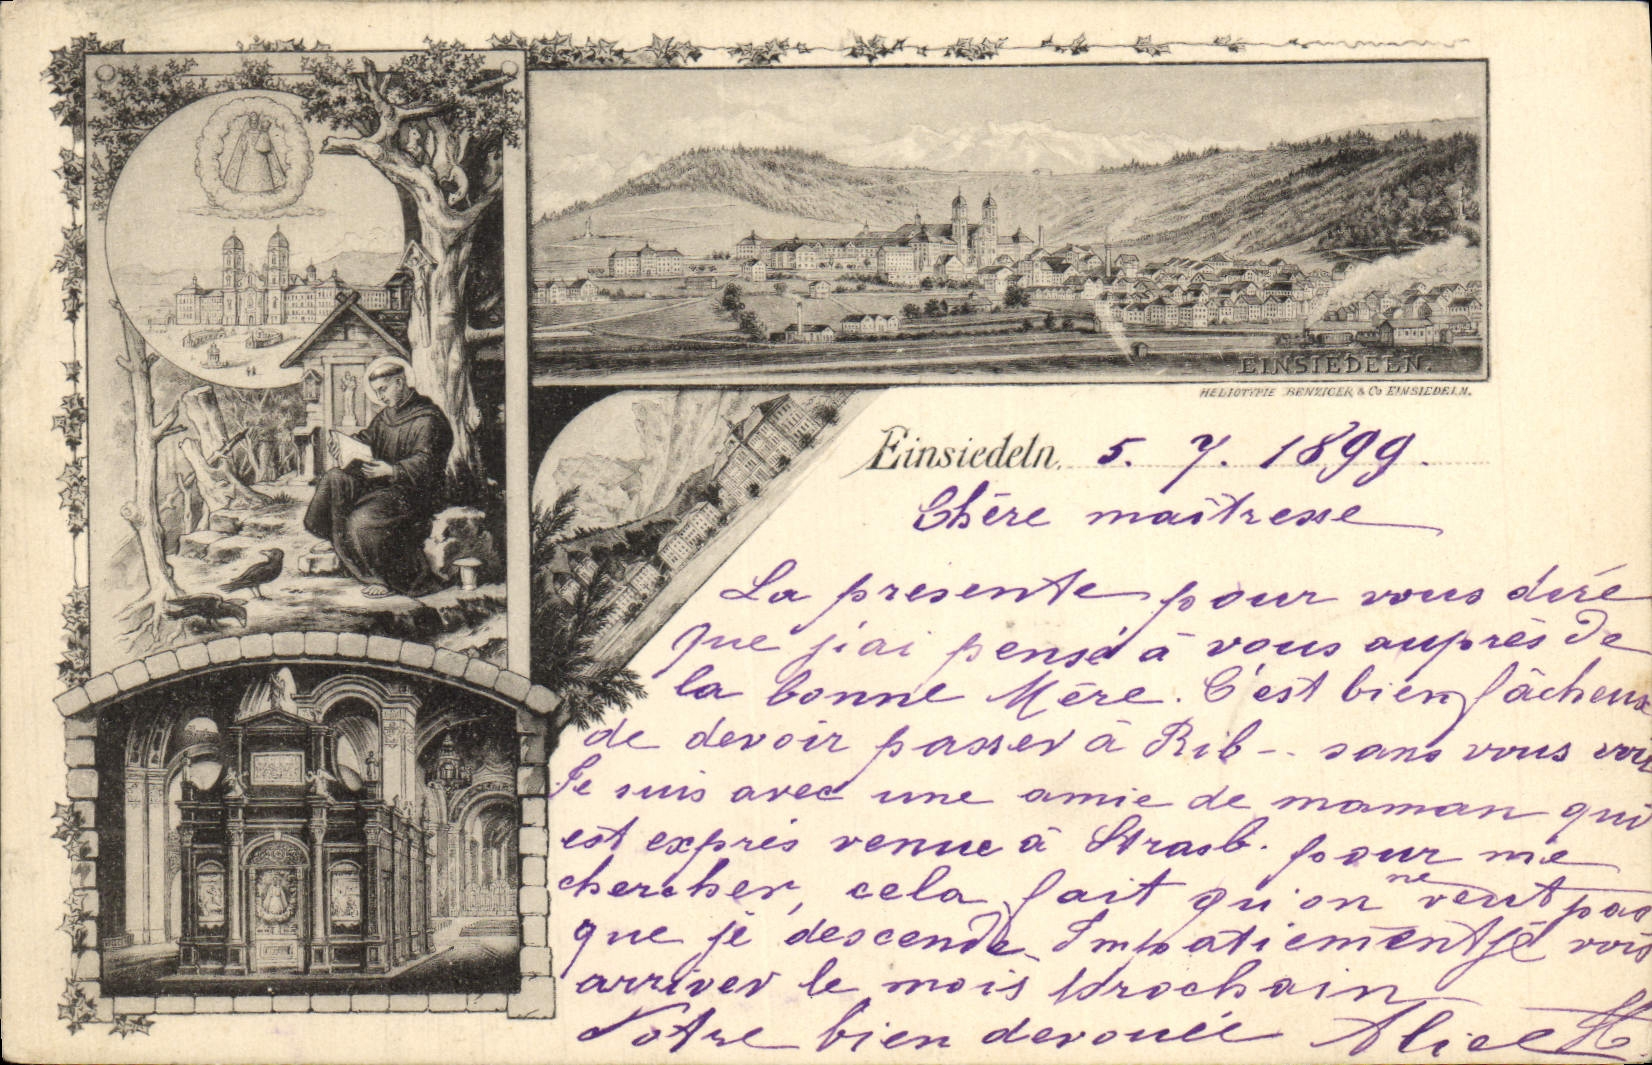 EINSIEDELN.
HELIOTYPIE BENZIGER & Co EINSIEDELN.
Einsiedeln, 5. 7. 1899.
Chère maîtresse
La présente pour vous dire
que j'ai pensé à vous auprès de
la bonne Mère. C'est bien fâcheux
de devoir passer à Rib-. sans vous voir
Je suis avec une amie de maman qui
est exprès venue à Strasb. pour me
chercher, cela fait qu'on ne veut pas
que je descende. Impatiemment je vois
arriver le mois prochain
Votre bien dévouée Alice H.